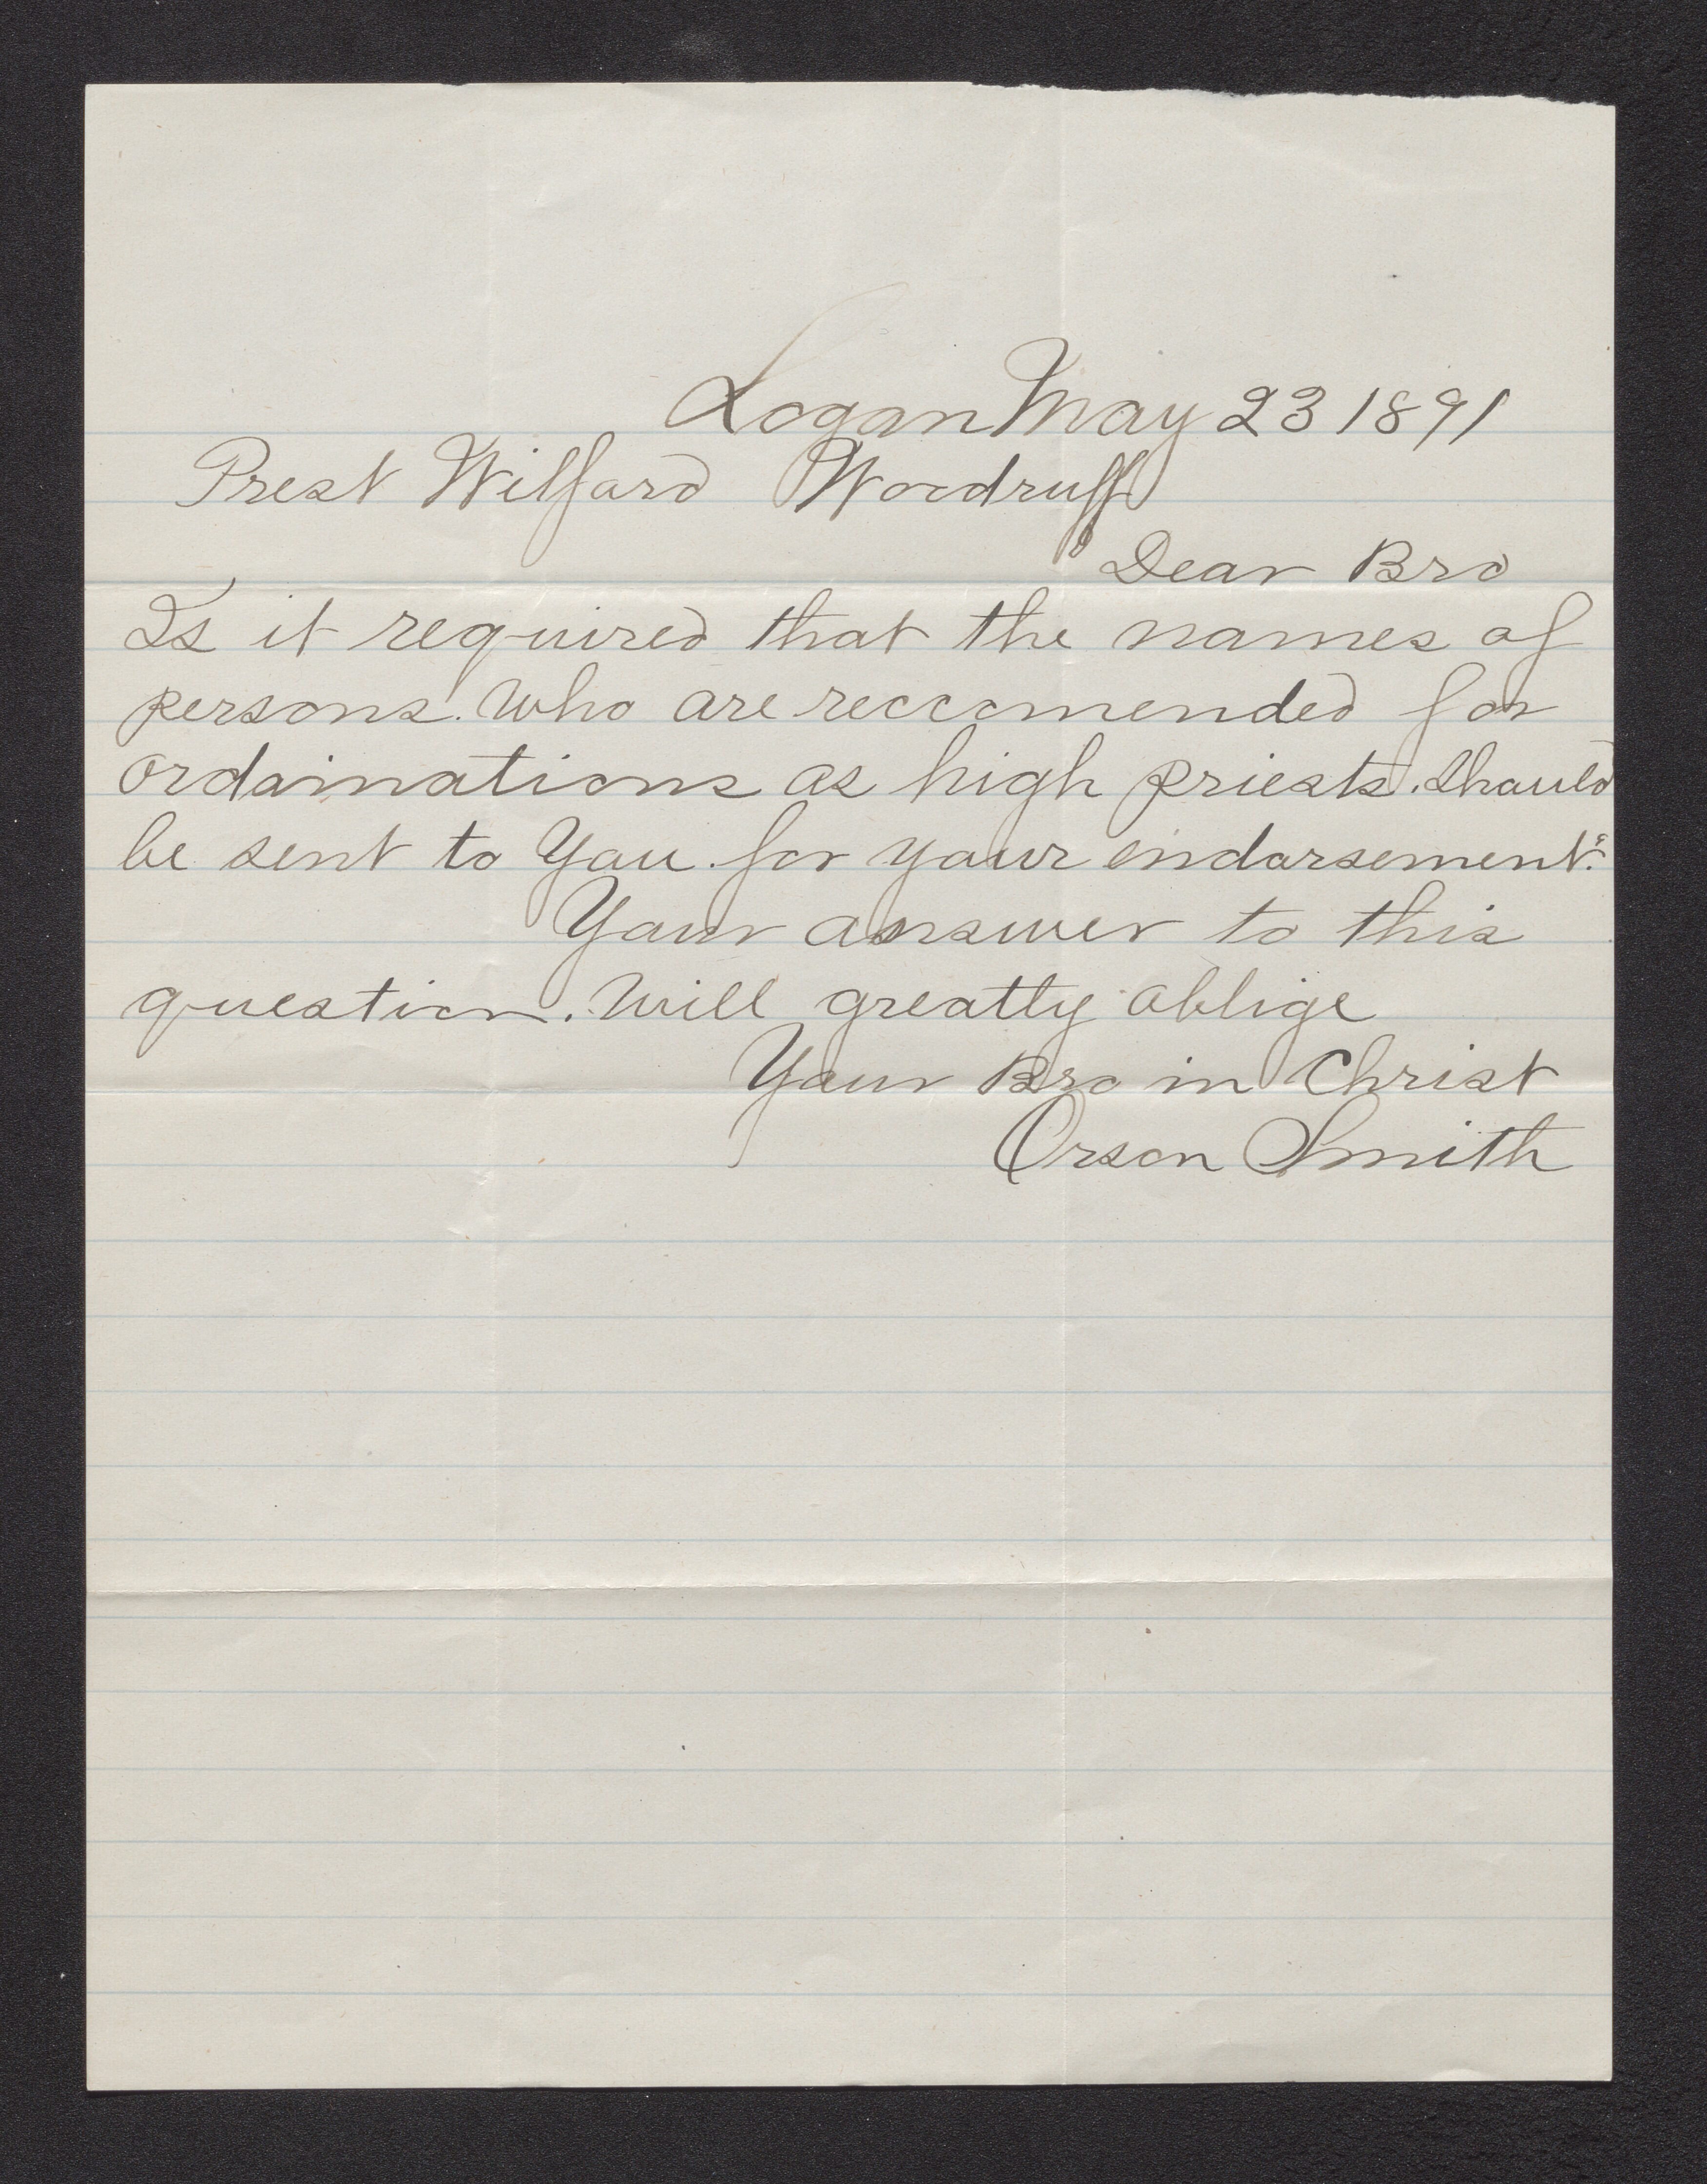 Logan May 23 1891
Prest Wilford Woodruff
Dear Bro
Is it required that the names of
persons. who are reccomended for
ordainations as high priests. should
be sent to You for your endorsement.
Your answer to this
question. will greatly oblige
Your Bro in Christ
Orson Smith